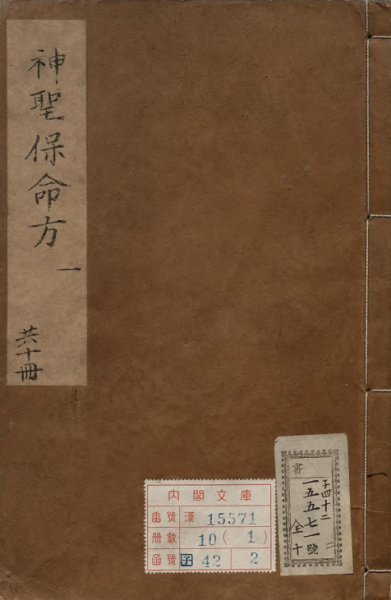 神聖保命方
一
共十冊
書
子四十二
一五五七一號
二
全十
內閣文庫
番號 漢 15571
冊數 10 (1)
函號 子 42 2